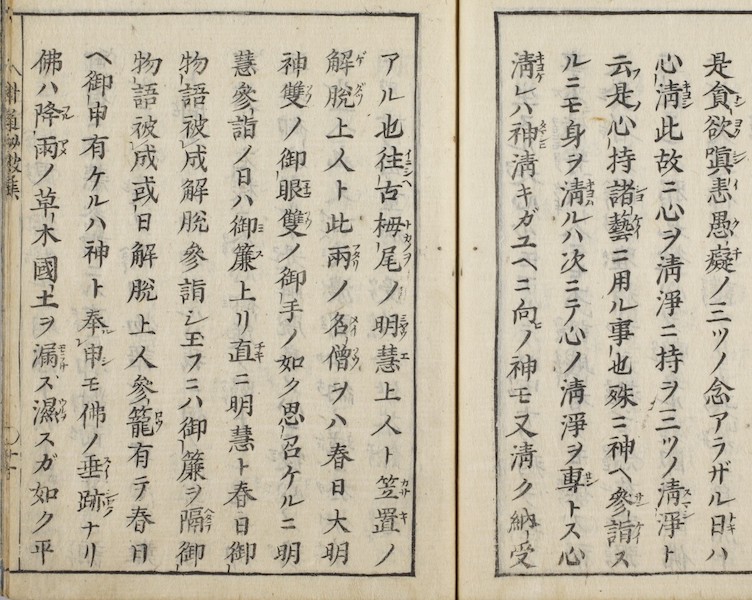 是貪欲嗔恚愚癡ノ三ツノ念アラザル日ハ
心清此故ニ心ヲ清淨ニ持ヲ三ツノ清淨ト
云是心持諸藝ニ用ル事也殊ニ神ヘ參詣ス
ルニモ身ヲ清ルハ次ニテ心ノ清淨ヲ專トス心
清レハ神清キガユヘニ向ノ神モ又清ク納受
アル也往古栂尾ノ明慧上人ト笠置ノ
解脱上人ト此兩ノ名僧ヲハ春日大明
神雙ノ御眼雙ノ御手ノ如ク思召ケルニ明
慧參詣ノ日ハ御簾上リ直ニ明慧ト春日御
物語被成解脱參詣シ玉フニハ御簾ヲ隔御
物語被成或日解脱上人參籠有テ春日
ヘ御申有ケルハ神ト奉申モ佛ノ垂跡ナリ
佛ハ降雨ノ草木國土ヲ漏ス濕スガ如ク平